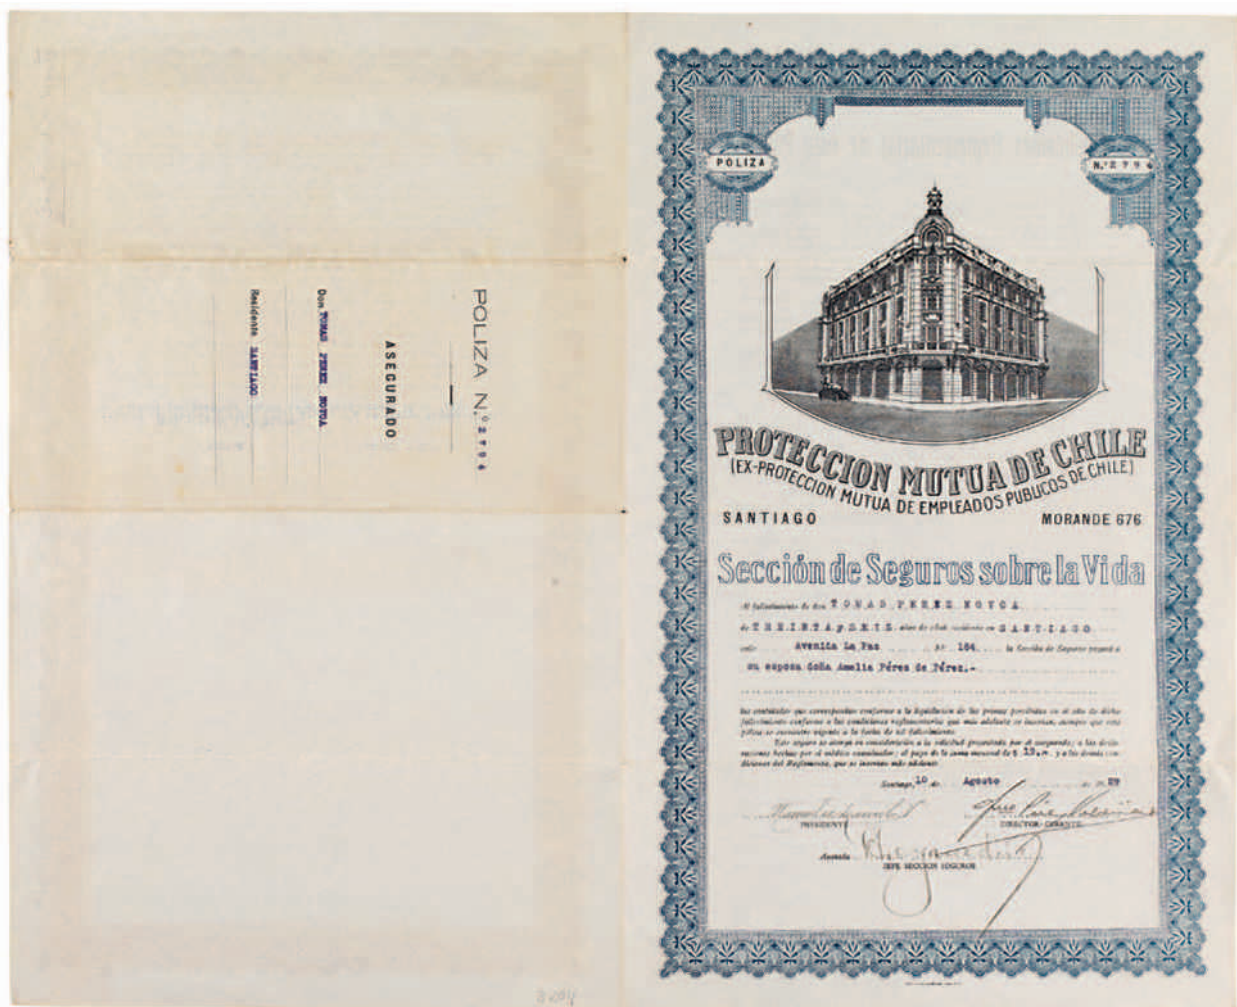 POLIZA N.º 2794
ASEGURADO
Don TOMAS PEREZ NOVOA
Residente SANTIAGO
POLIZA
N.º 2794
PROTECCION MUTUA DE CHILE
(EX-PROTECCION MUTUA DE EMPLEADOS PUBLICOS DE CHILE)
SANTIAGO MORANDE 676
Sección de Seguros sobre la Vida
Al fallecimiento de don TOMAS PEREZ NOVOA
de TREINTA y SEIS años de edad residente en SANTIAGO
calle Avenida La Paz Nº 164 la Sección de Seguros pagará a
su esposa doña Amelia Pérez de Pérez.-
las cantidades que correspondan conforme a la liquidación de las primas percibidas en el año de dicho
fallecimiento conforme a las condiciones reglamentarias que más adelante se insertan, siempre que esta
póliza se encuentre vigente a la fecha de tal fallecimiento.
Este seguro se otorga en consideración a la solicitud presentada por el asegurado; a las decla-
raciones hechas por el médico examinador; al pago de la suma mensual de $ 12.- y a las demás con-
diciones del Reglamento, que se insertan más adelante.
Santiago, 10 de Agosto de 1929
PRESIDENTE
DIRECTOR-GERENTE
Anotada
JEFE SECCION SEGUROS